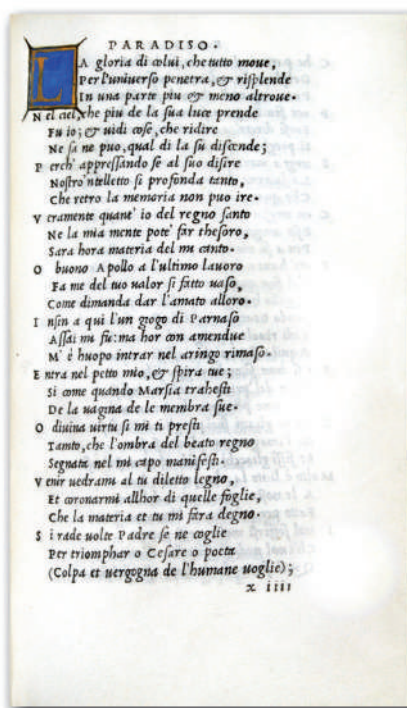 PARADISO.
LA gloria di colui, che tutto moue,
Per l'uniuerso penetra, & risplende
In una parte piu et meno altroue.
Nel ciel, che piu de la sua luce prende
Fu io; & uidi cose, che ridire
Ne sa ne puo, qual di la su discende;
Perch' appressando se al suo disire
Nostro 'ntelletto si profonda tanto,
Che retro la memoria non puo ire.
Veramente quant' io del regno santo
Ne la mia mente pote' far thesoro,
Sara hora materia del mi canto.
O buono Apollo a l'ultimo lauoro
Fa me del tuo ualor si fatto uaso,
Come dimanda dar l'amato alloro.
Insin a qui l'un giogo di Parnaso
Assai mi fu: ma hor con amendue
M' è huopo intrar nel aringo rimaso.
Entra nel petto mio, & spira tue;
Si come quando Marsia trahesti
De la uagina de le membra sue.
O diuina uirtu si mi ti presti
Tanto, che l'ombra del beato regno
Segnata nel mi capo manifesti.
Venir uedrami al tu diletto legno,
Et coronarmi allhor di quelle foglie,
Che la materia et tu mi fara degno.
Si rade uolte Padre se ne coglie
Per triomphar o Cesare o poeta
(Colpa et uergogna de l'humane uoglie);
x iiii